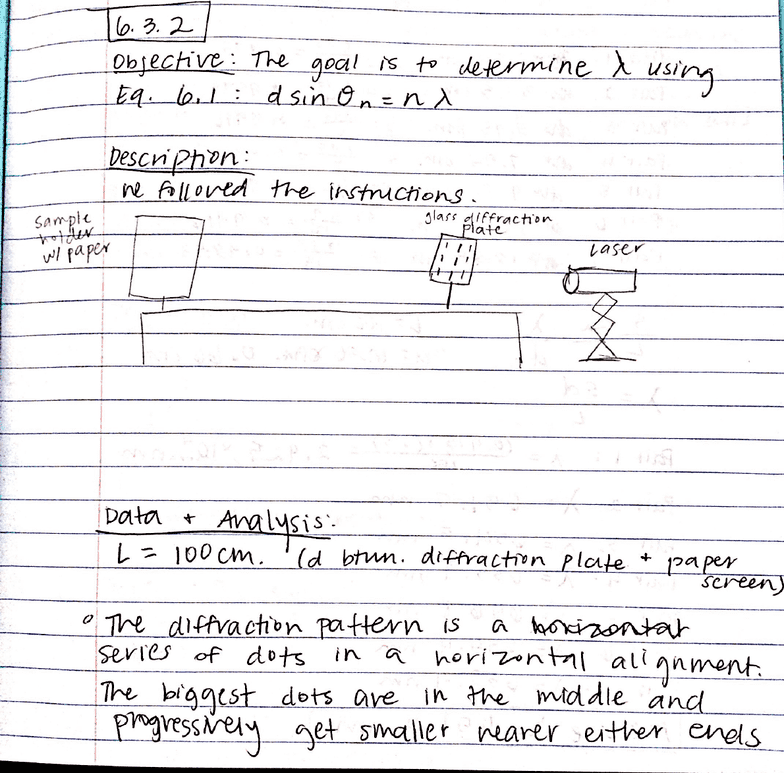 6.3.2
Objective: The goal is to determine λ using
Eq. 6.1: d sin θn = n λ
Description:
we followed the instructions.
sample
holder
w/ paper
glass diffraction
plate
Laser
Data + Analysis:
L = 100cm. (d btwn. diffraction plate + paper
screen)
° The diffraction pattern is a horizontal
series of dots in a horizontal alignment.
The biggest dots are in the middle and
progressively get smaller nearer either ends